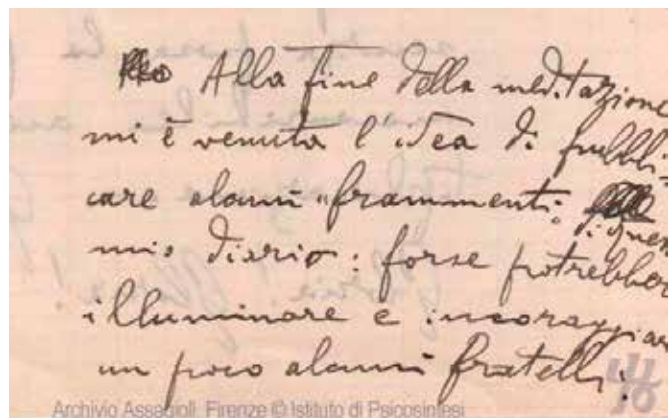 Alla fine della meditazione
mi è venuta l'idea di pubbli-
care alcuni "frammenti" di ques
mio diario: forse potrebber
illuminare e incoraggiar
un poco alcuni fratelli!
Archivio Assagioli Firenze © Istituto di Psicosintesi